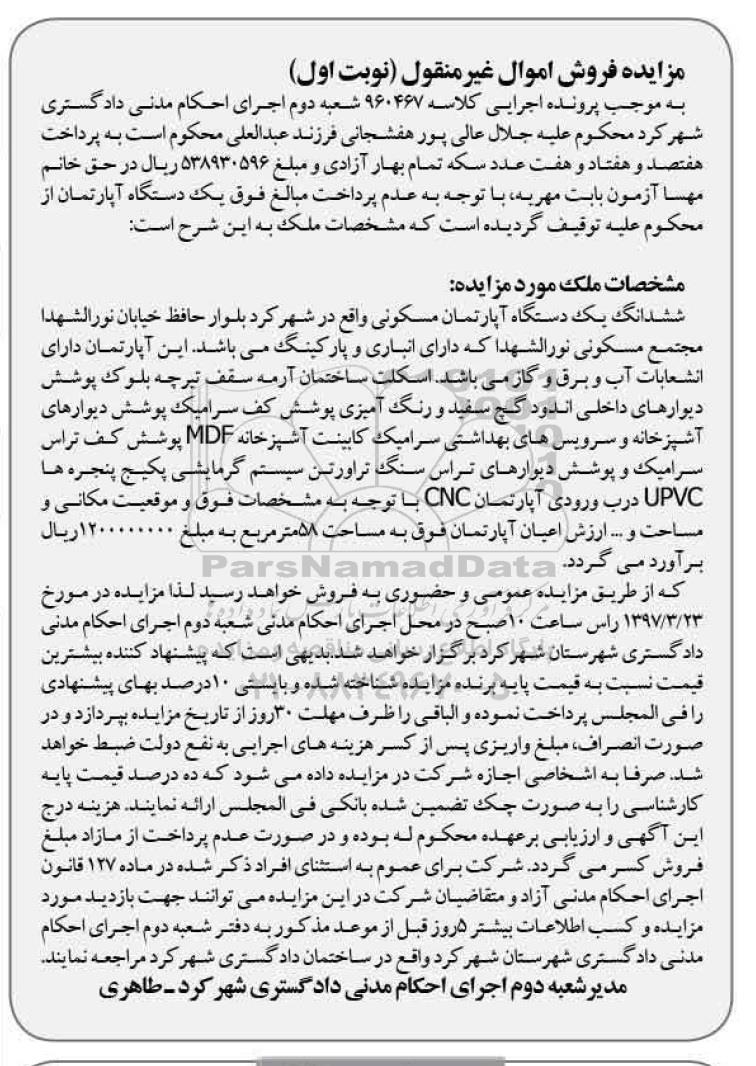 مزایده فروش اموال غیرمنقول (نوبت اول)
به موجب پرونده اجرایی کلاسه ۹۶۰۴۶۷ شعبه دوم اجرای احکام مدنی دادگستری
شهرکرد محکوم علیه جلال عالی پور هفشجانی فرزند عبدالعلی محکوم است به پرداخت
هفتصد و هفتاد و هفت عدد سکه تمام بهار آزادی و مبلغ ۵۳۸۹۳۰۵۹۶ ریال در حق خانم
مهسا آزمون بابت مهریه، با توجه به عدم پرداخت مبالغ فوق یک دستگاه آپارتمان از
محکوم علیه توقیف گردیده است که مشخصات ملک به این شرح است:
مشخصات ملک مورد مزایده:
ششدانگ یک دستگاه آپارتمان مسکونی واقع در شهرکرد بلوار حافظ خیابان نورالشهدا
مجتمع مسکونی نورالشهدا که دارای انباری و پارکینگ می باشد. این آپارتمان دارای
انشعابات آب و برق و گاز می باشد. اسکلت ساختمان آرمه سقف تیرچه بلوک پوشش
دیوارهای داخلی اندود گچ سفید و رنگ آمیزی پوشش کف سرامیک پوشش دیوارهای
آشپزخانه و سرویس های بهداشتی سرامیک کابینت آشپزخانه MDF پوشش کف تراس
سرامیک و پوشش دیوارهای تراس سنگ تراورتن سیستم گرمایشی پکیج پنجره ها
UPVC درب ورودی آپارتمان CNC با توجه به مشخصات فوق و موقعیت مکانی و
مساحت و ... ارزش اعیان آپارتمان فوق به مساحت ۵۸مترمربع به مبلغ ۱۲۰۰۰۰۰۰۰۰ریال
برآورد می گردد.
ParsNamadData
که از طریق مزایده عمومی و حضوری به فروش خواهد رسید لذا مزایده در مورخ
۱۳۹۷/۳/۲۳ راس ساعت ۱۰صبح در محل اجرای احکام مدنی شعبه دوم اجرای احکام مدنی
دادگستری شهرستان شهرکرد برگزار خواهد شد.بدیهی است که پیشنهاد کننده بیشترین
قیمت نسبت به قیمت پایه برنده مزایده شناخته شده و بایستی ۱۰درصد بهای پیشنهادی
را فی المجلس پرداخت نموده و الباقی را ظرف مهلت ۳۰روز از تاریخ مزایده بپردازد و در
صورت انصراف، مبلغ واریزی پس از کسر هزینه های اجرایی به نفع دولت ضبط خواهد
شد. صرفا به اشخاصی اجازه شرکت در مزایده داده می شود که ده درصد قیمت پایه
کارشناسی را به صورت چک تضمین شده بانکی فی المجلس ارائه نمایند. هزینه درج
این آگهی و ارزیابی برعهده محکوم له بوده و در صورت عدم پرداخت از مازاد مبلغ
فروش کسر می گردد. شرکت برای عموم به استثنای افراد ذکر شده در ماده ۱۲۷ قانون
اجرای احکام مدنی آزاد و متقاضیان شرکت در این مزایده می توانند جهت بازدید مورد
مزایده و کسب اطلاعات بیشتر ۵روز قبل از موعد مذکور به دفتر شعبه دوم اجرای احکام
مدنی دادگستری شهرستان شهرکرد واقع در ساختمان دادگستری شهرکرد مراجعه نمایند.
مدیر شعبه دوم اجرای احکام مدنی دادگستری شهرکرد - طاهری